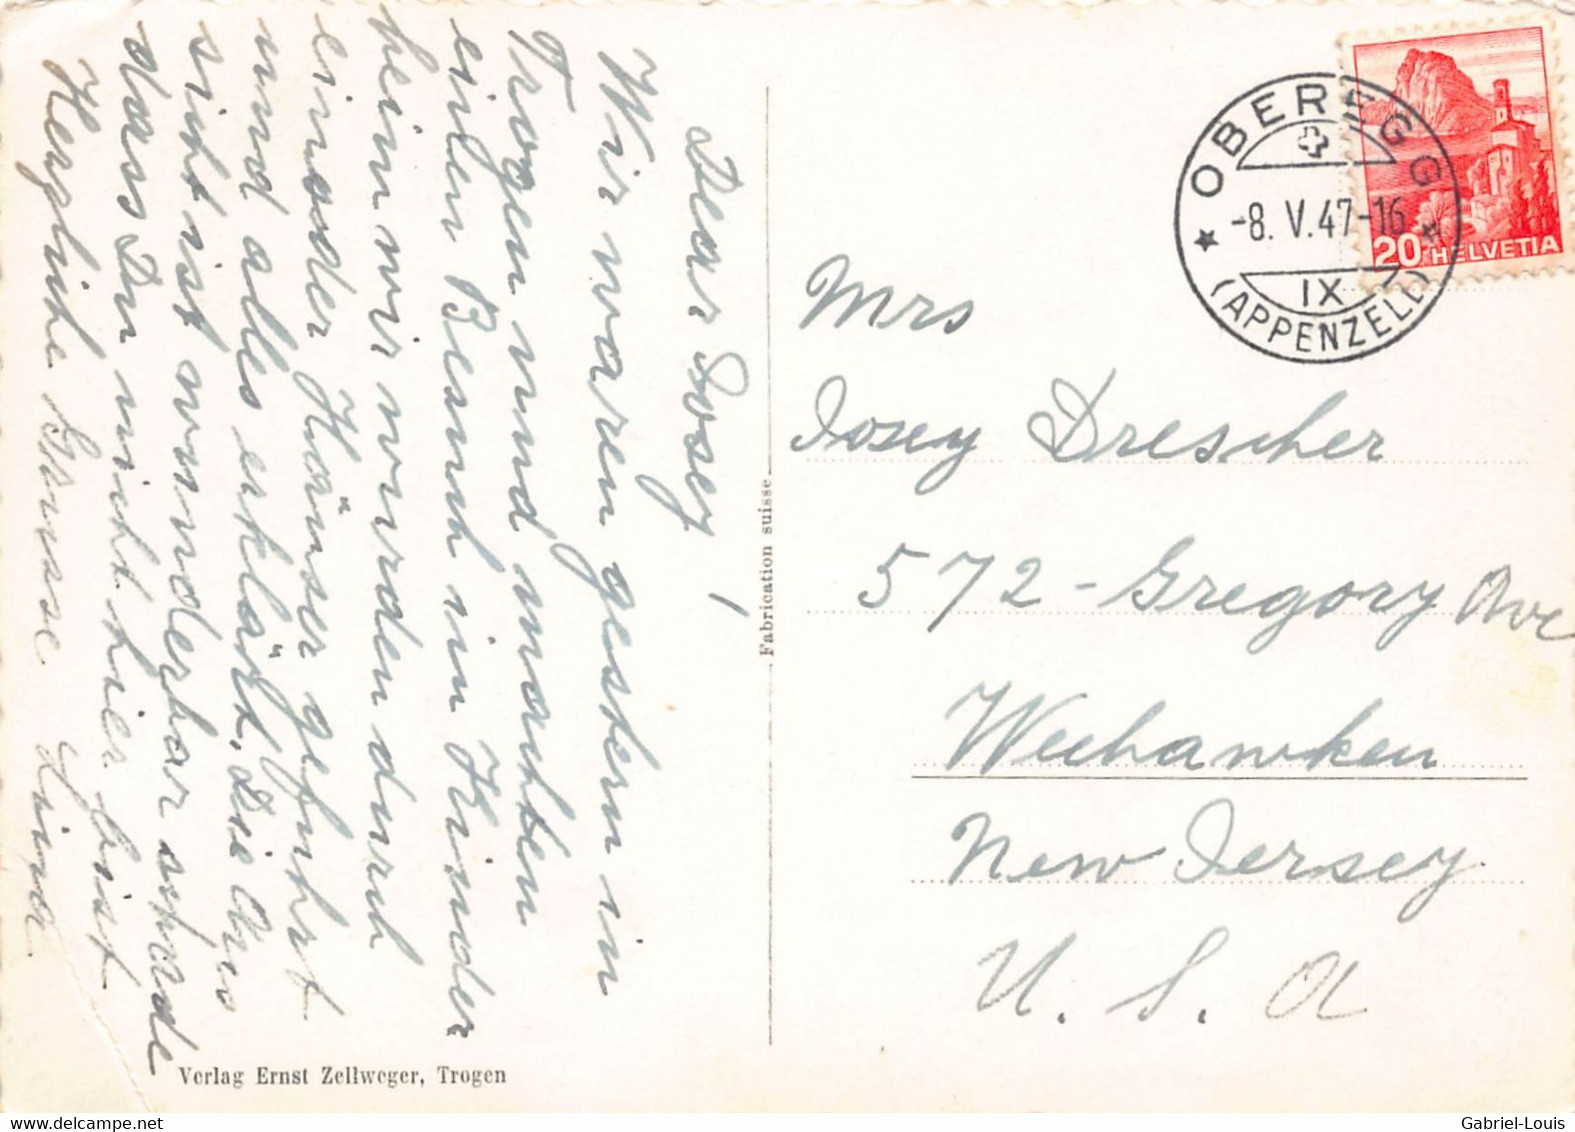 Dear Josey !
Wir waren gestern in
Trogen und machten
einen Besuch im Kinder
heim wir wurden durch
einader Häuser gefuhrt
und alles erklärt. Die Aus
sicht ist wunderbar schade
dass Du nicht hier bist
Herzliche Grüsse Lina
Fabrication suisse
Verlag Ernst Zellweger, Trogen
OBEREGG
-8. V. 47-16
IX
(APPENZELL)
20 HELVETIA
Mrs
Josey Drescher
572 - Gregory Ave
Weehawken
New Jersey
U. S. A
Gabriel-Louis